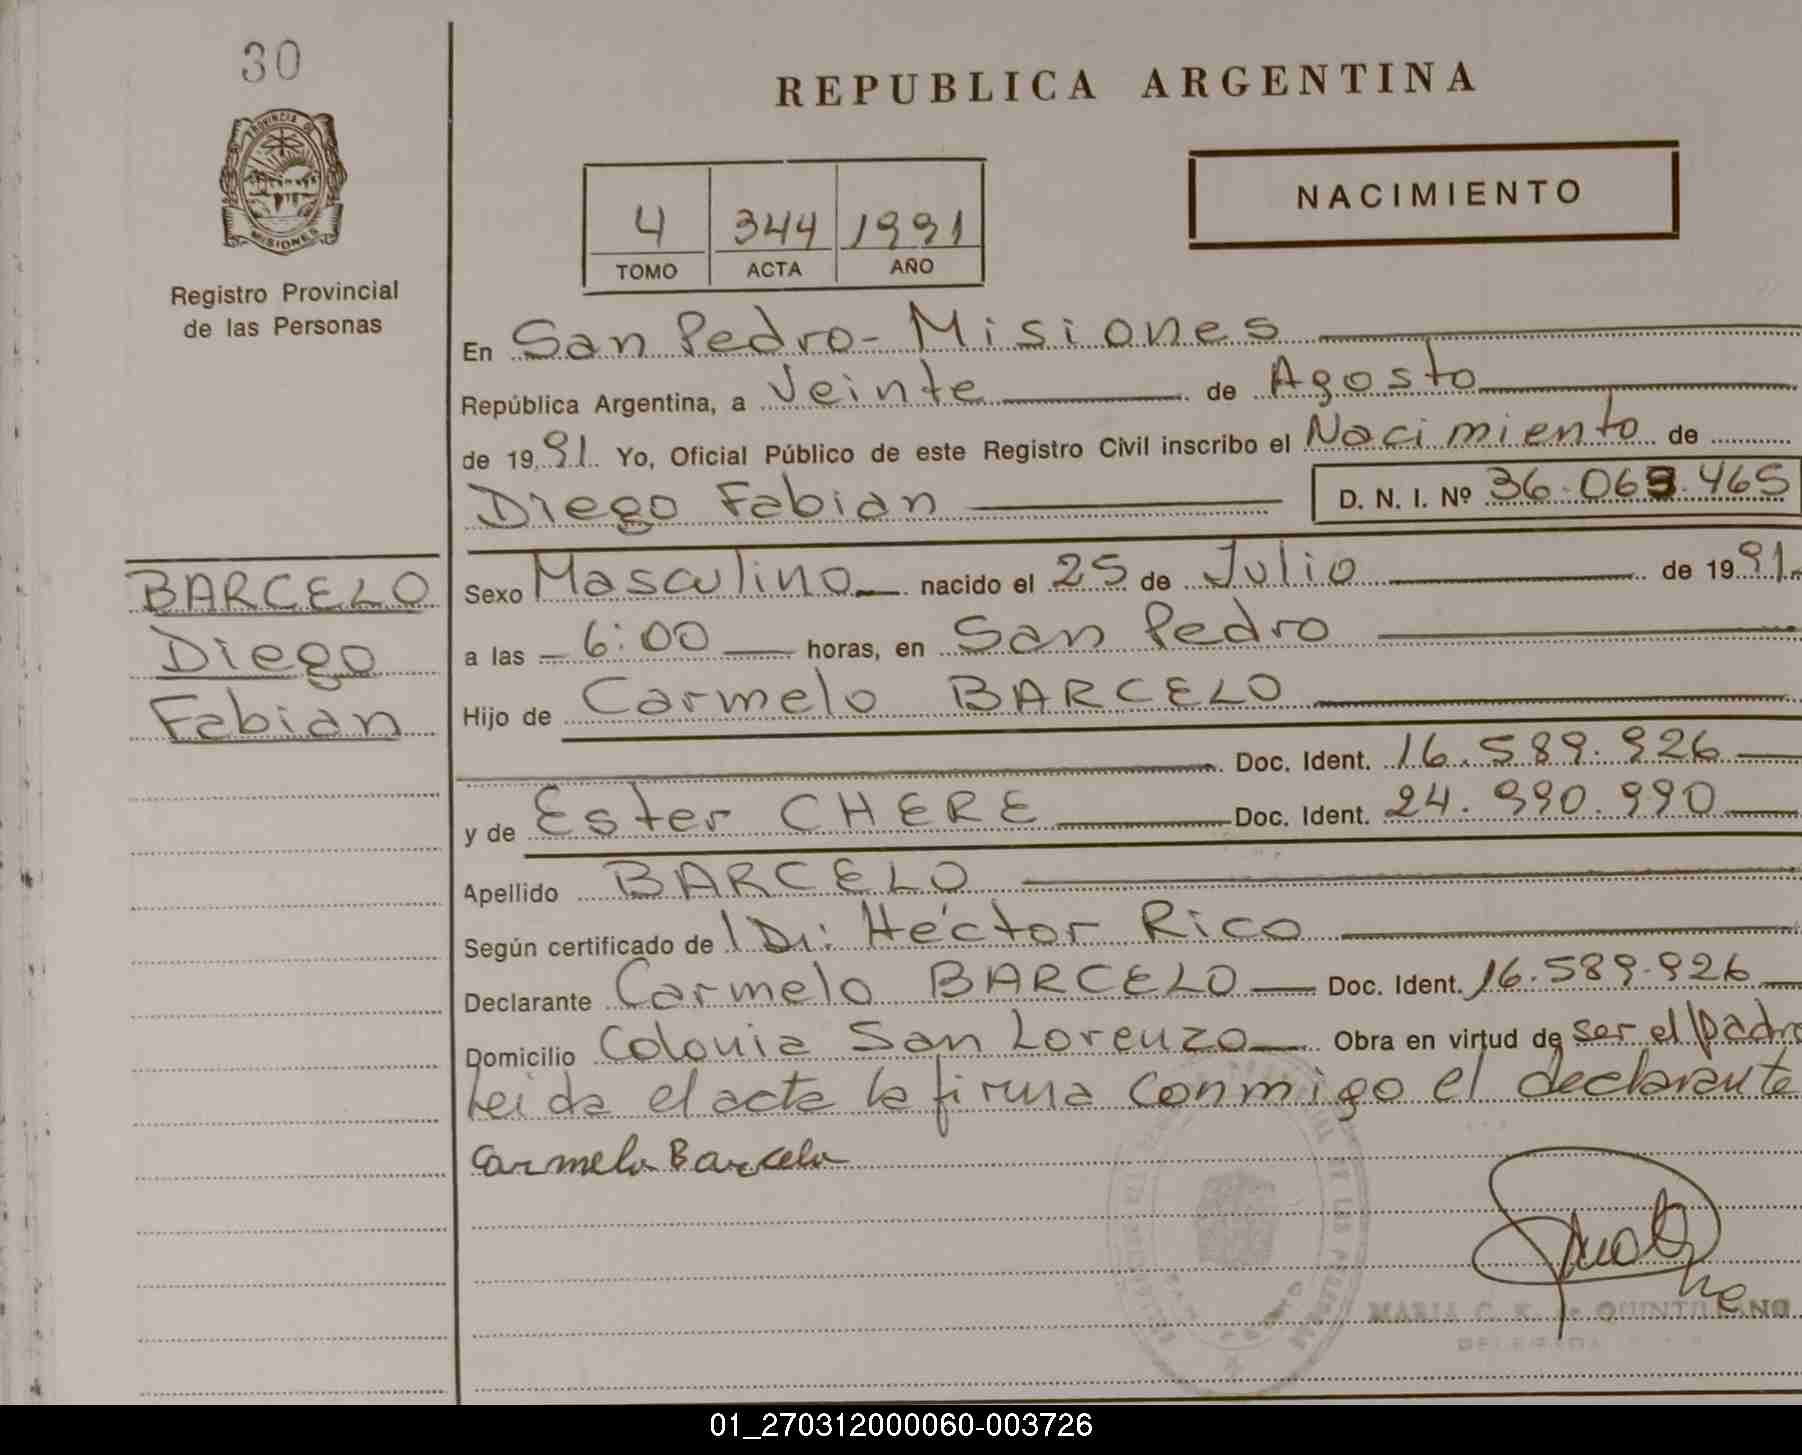 30
PROVINCIA DE
MISIONES
Registro Provincial
de las Personas
REPUBLICA ARGENTINA
NACIMIENTO
4 344 1991
TOMO ACTA AÑO
En San Pedro - Misiones
República Argentina, a Veinte de Agosto
de 1991. Yo, Oficial Público de este Registro Civil inscribo el Nacimiento de
Diego Fabian D. N. I. Nº 36.063.465
BARCELO
Diego
Fabian
Sexo Masculino nacido el 25 de Julio de 1991.
a las 6:00 horas, en San Pedro
Hijo de Carmelo BARCELO
Doc. Ident. 16.589.926
y de Ester CHERE Doc. Ident. 24.990.990
Apellido BARCELO
Según certificado de Dr: Héctor Rico
Declarante Carmelo BARCELO Doc. Ident. 16.589.926
Domicilio Colonia San Lorenzo Obra en virtud de ser el padre
Leida el acta la firma conmigo el declarante
Carmelo Barcelo
MARIA C. K. de QUINTILLANO
DELEGADA
01_270312000060-003726